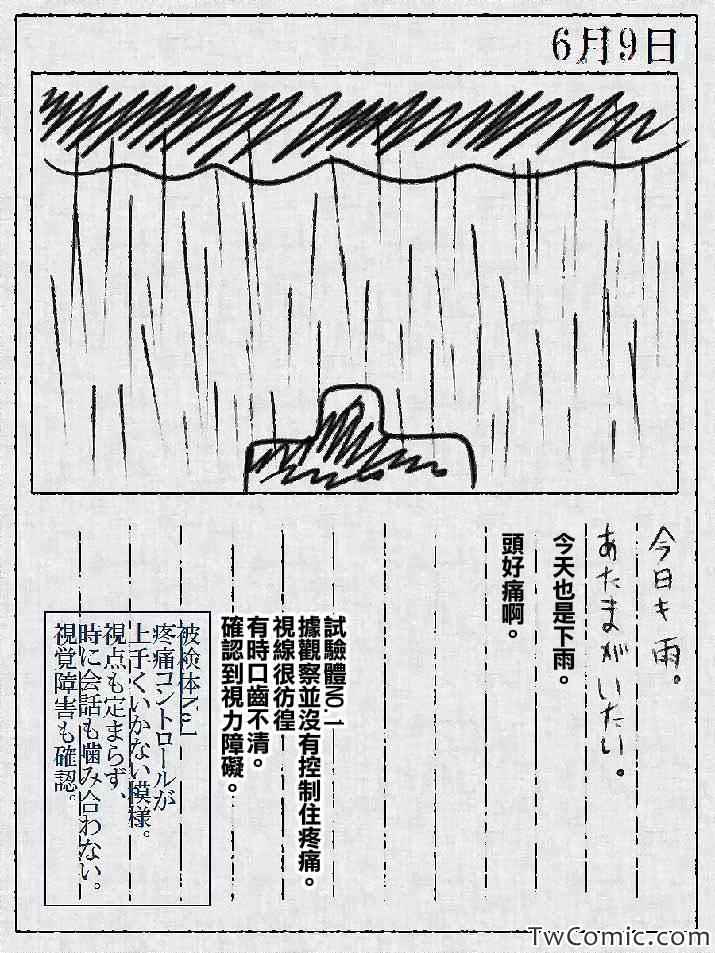 6月9日
今日モ雨。
あたまがいたい。
今天也是下雨。
頭好痛啊。
試驗體NO.1
據觀察並沒有控制住疼痛。
視線很彷徨
有時口齒不清。
確認到視力障礙。
被検体No.1
疼痛コントロールが
上手くいかない模様。
視点も定まらず、
時に会話も噛み合わない。
視覚障害も確認。
TwComic.com